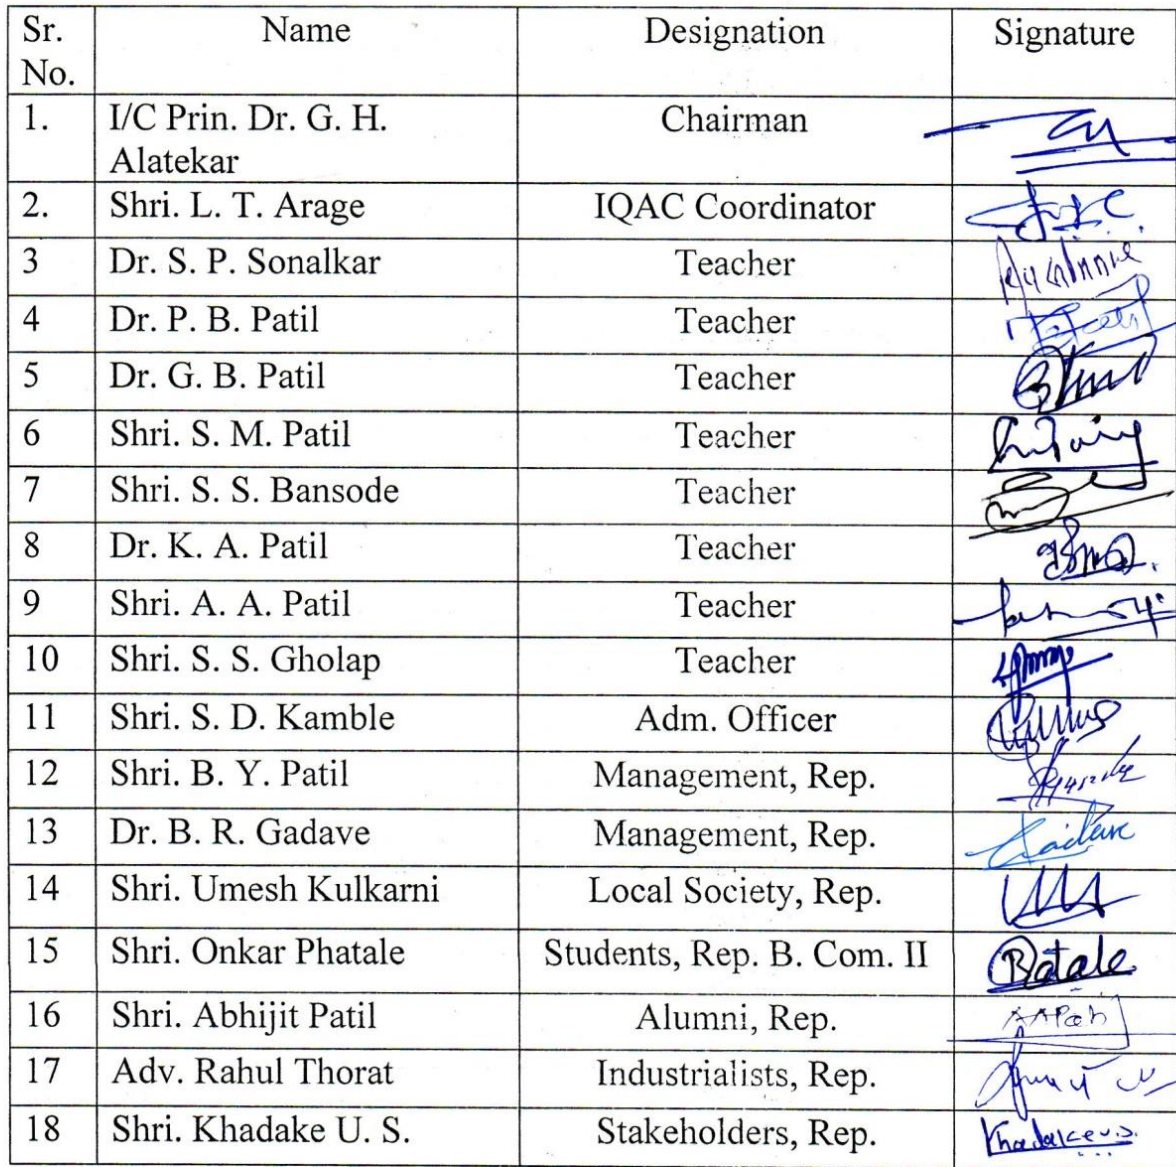 Sr. No. Name Designation Signature
1. I/C Prin. Dr. G. H. Alatekar Chairman
2. Shri. L. T. Arage IQAC Coordinator
3 Dr. S. P. Sonalkar Teacher
4 Dr. P. B. Patil Teacher
5 Dr. G. B. Patil Teacher
6 Shri. S. M. Patil Teacher
7 Shri. S. S. Bansode Teacher
8 Dr. K. A. Patil Teacher
9 Shri. A. A. Patil Teacher
10 Shri. S. S. Gholap Teacher
11 Shri. S. D. Kamble Adm. Officer
12 Shri. B. Y. Patil Management, Rep.
13 Dr. B. R. Gadave Management, Rep.
14 Shri. Umesh Kulkarni Local Society, Rep.
15 Shri. Onkar Phatale Students, Rep. B. Com. II
16 Shri. Abhijit Patil Alumni, Rep.
17 Adv. Rahul Thorat Industrialists, Rep.
18 Shri. Khadake U. S. Stakeholders, Rep. Khadake U.S.